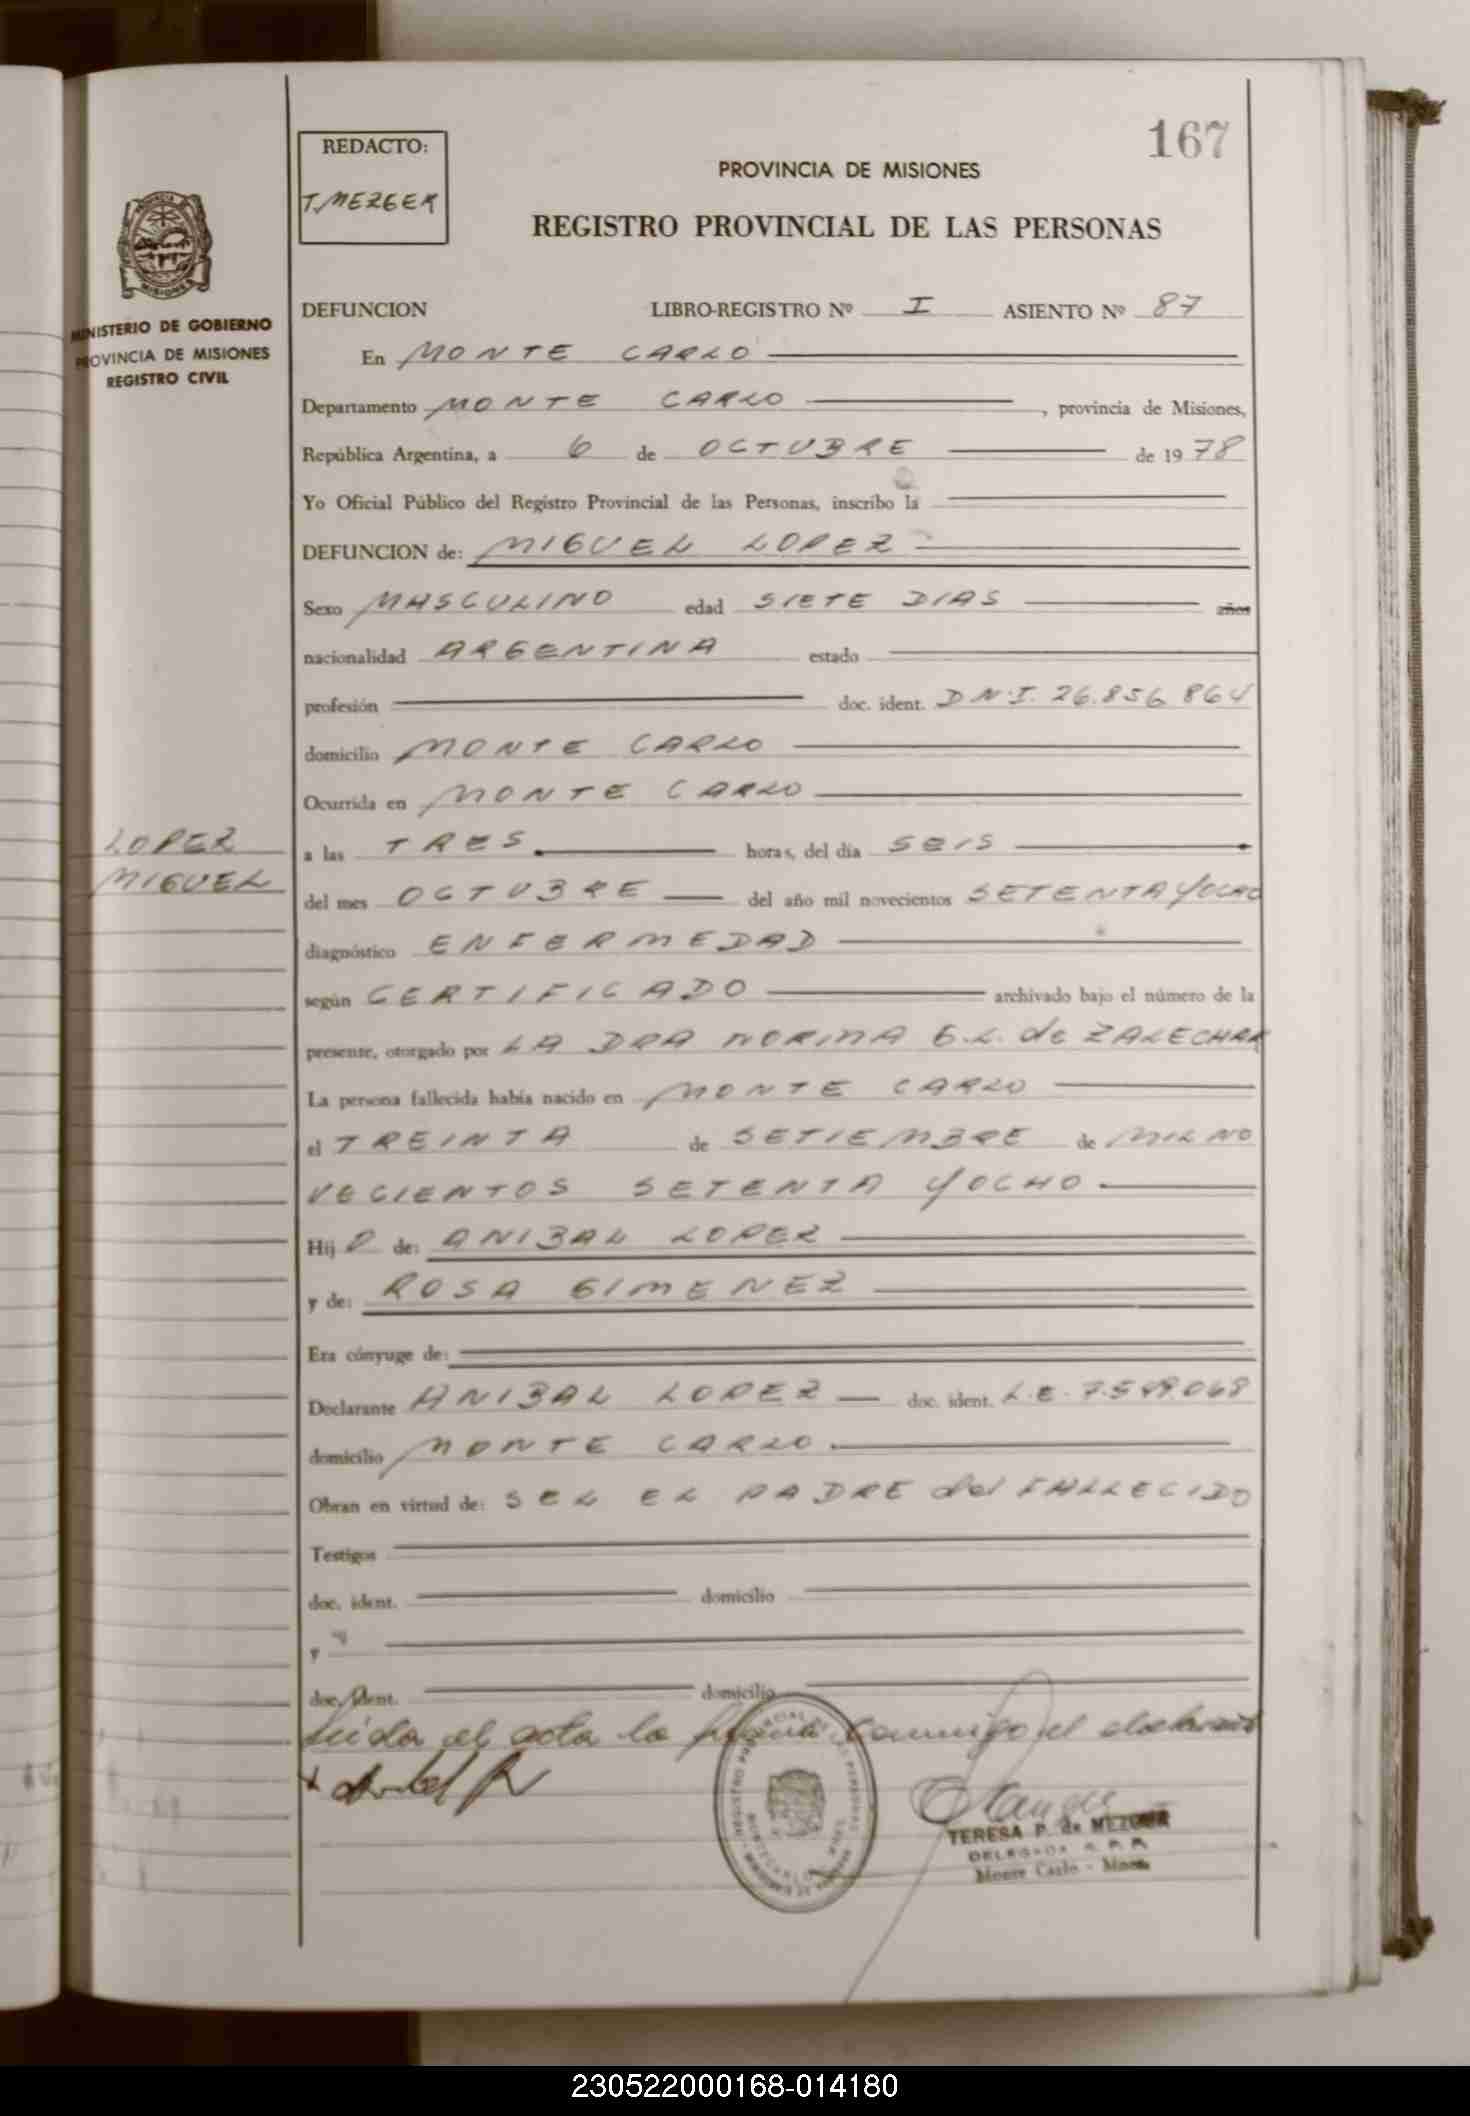 167
REDACTO:
T. MEZGER
PROVINCIA DE MISIONES
REGISTRO PROVINCIAL DE LAS PERSONAS
MINISTERIO DE GOBIERNO
PROVINCIA DE MISIONES
REGISTRO CIVIL
DEFUNCION LIBRO-REGISTRO Nº I ASIENTO Nº 87
En MONTE CARLO
Departamento MONTE CARLO , provincia de Misiones,
República Argentina, a 6 de OCTUBRE de 19 78
Yo Oficial Público del Registro Provincial de las Personas, inscribo la
DEFUNCION de: MIGUEL LOPEZ
Sexo MASCULINO edad SIETE DIAS años
nacionalidad ARGENTINA estado
profesión doc. ident. D.N.I. 26.856.864
domicilio MONTE CARLO
Ocurrida en MONTE CARLO
LOPEZ
MIGUEL
a las TRES horas, del día SEIS
del mes OCTUBRE del año mil novecientos SETENTA Y OCHO
diagnóstico ENFERMEDAD
según CERTIFICADO archivado bajo el número de la
presente, otorgado por LA DRA NORMA de
La persona fallecida había nacido en MONTE CARLO
el TREINTA de SETIEMBRE de MIL NO
VECIENTOS SETENTA Y OCHO
Hij O de: ANIBAL LOPEZ
y de: ROSA GIMENEZ
Era cónyuge de:
Declarante ANIBAL LOPEZ doc. ident. L.E. 7.549.068
domicilio MONTE CARLO
Obran en virtud de: SER EL PADRE del FALLECIDO
Testigos
doc. ident. domicilio
y
doc. ident. domicilio
Leida el acta la firma conmigo el declarante
TERESA P. de MEZGER
DELEGADA R. P. P.
Monte Carlo - Mnes.
230522000168-014180